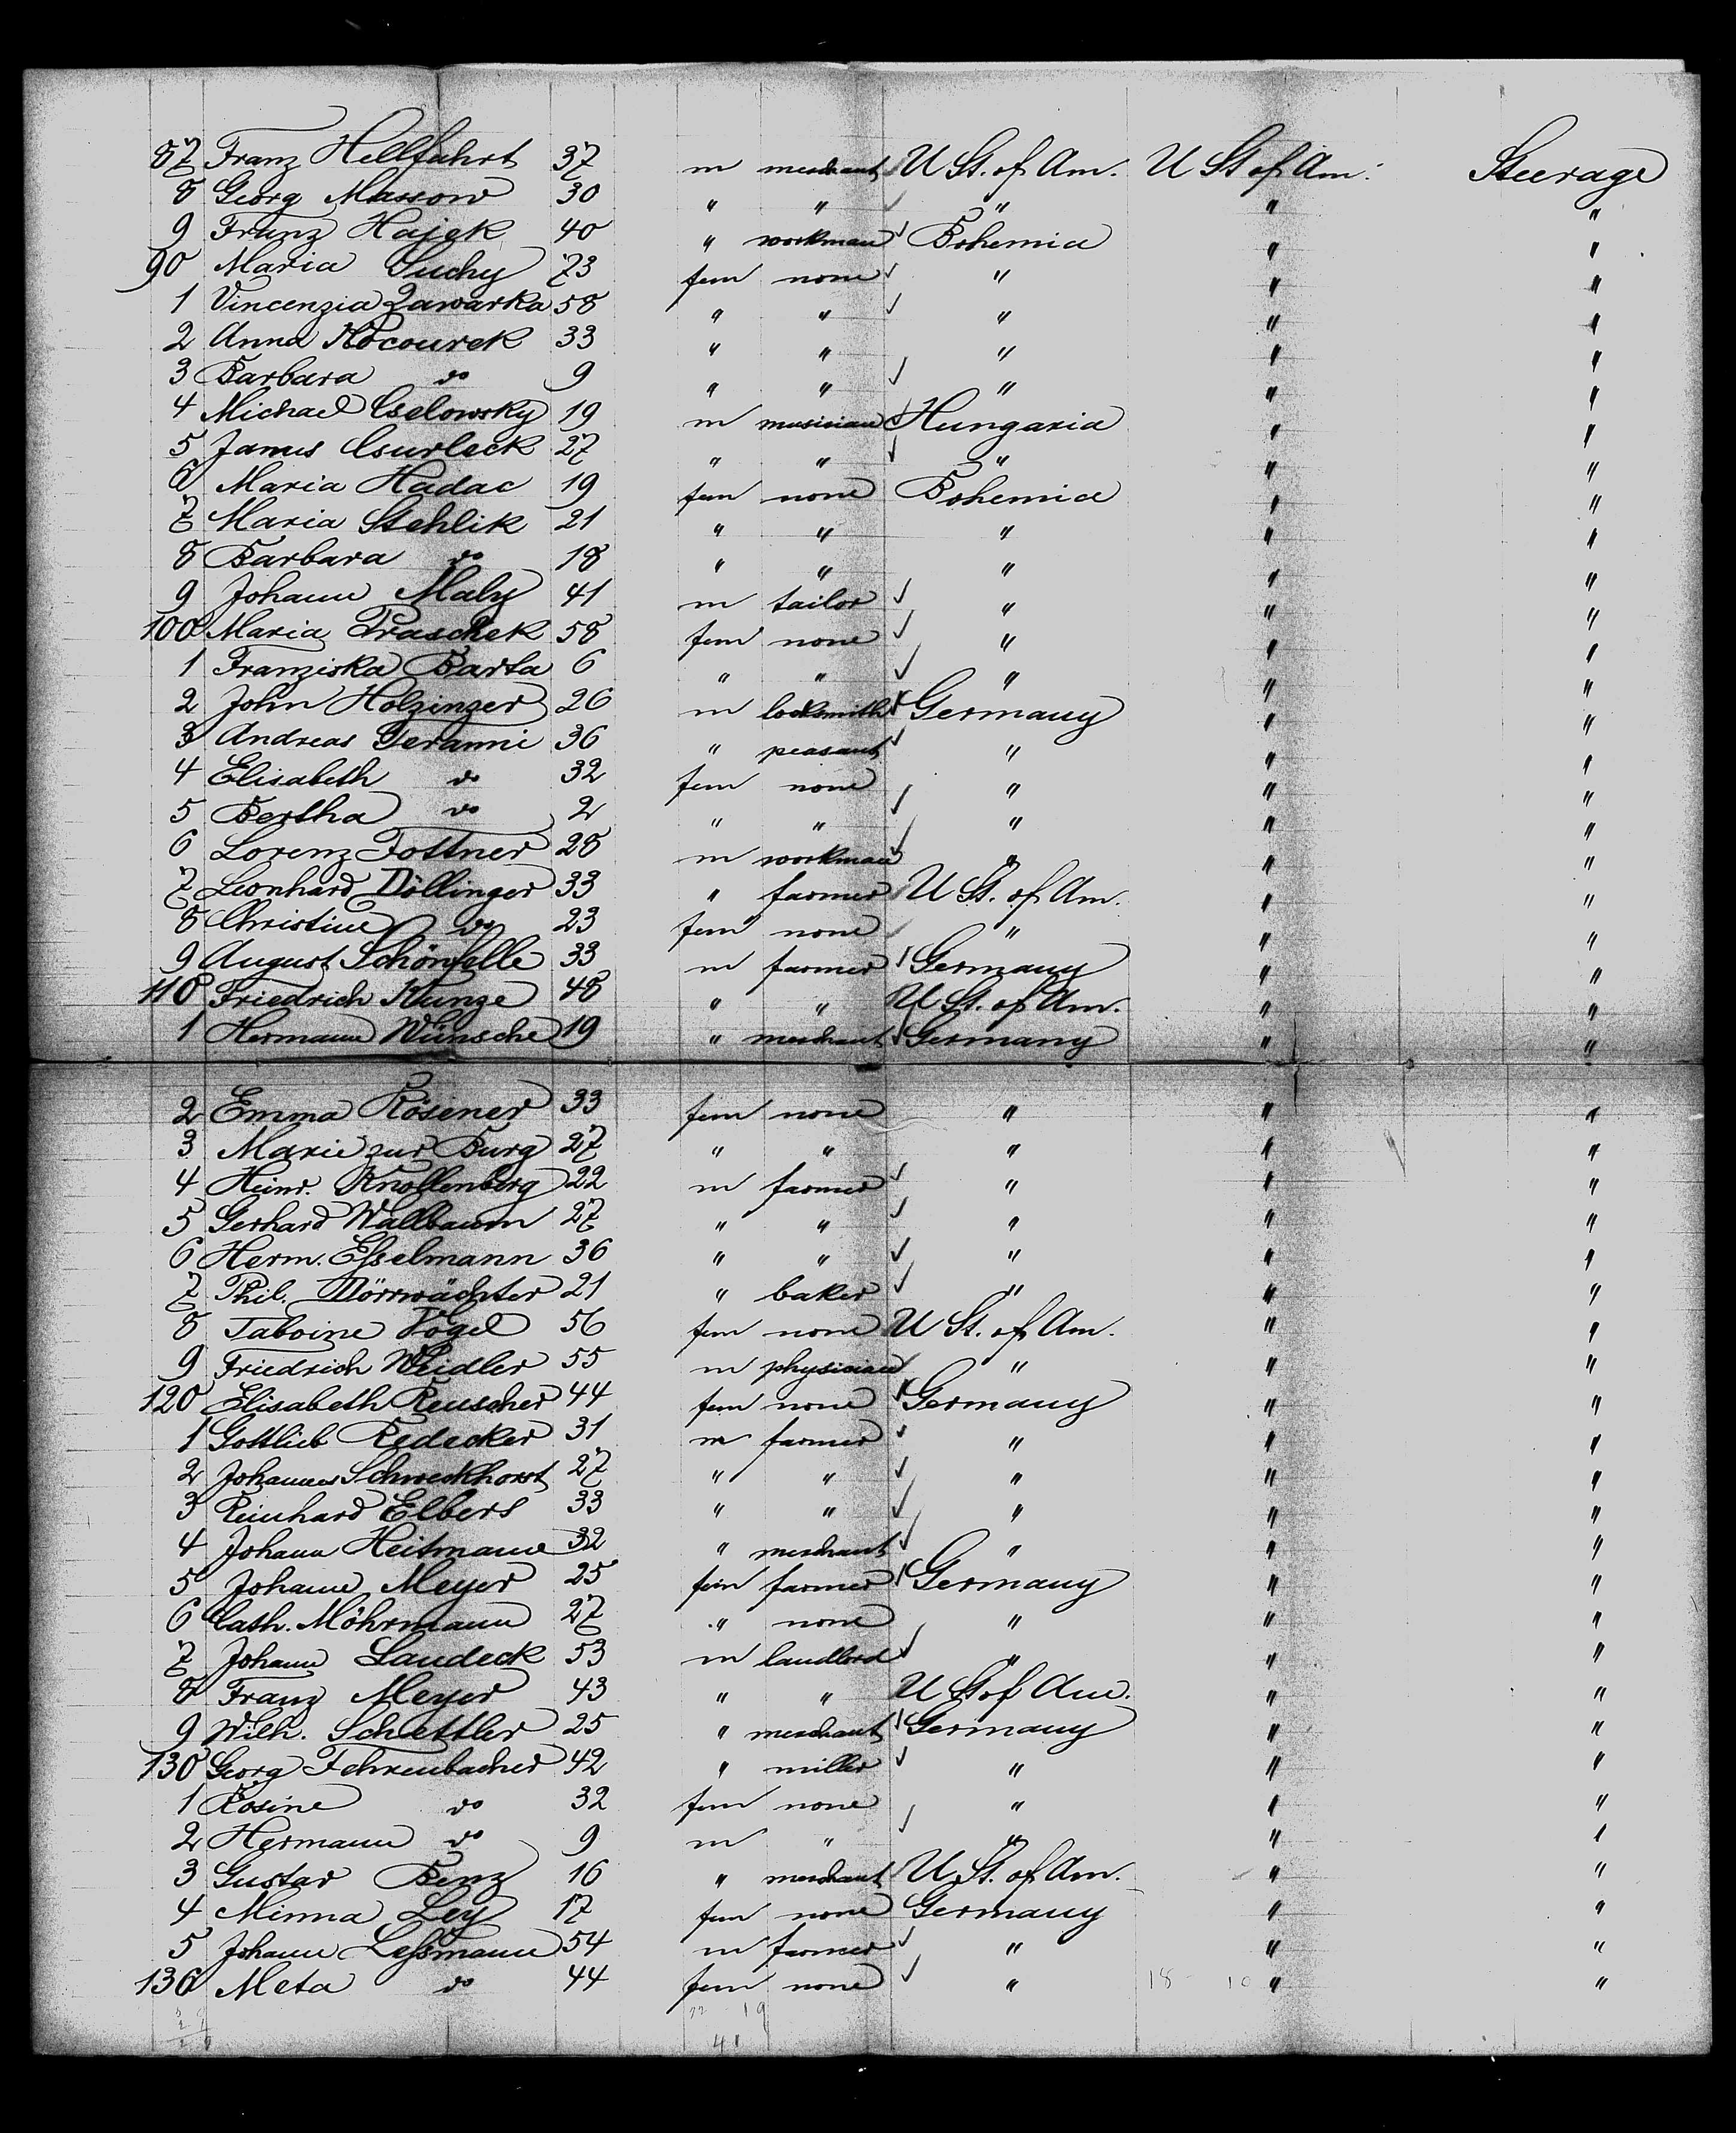 87 Franz Hellfahrt 37 m merchant U St. of Am. U St of Am. Steerage
8 Georg Massow 30 " " " " "
9 Franz Hajek 40 " workman Bohemia " "
90 Maria Suchy 23 fem none " " "
1 Vincenzia Zawarka 58 " " " " "
2 Anna Kocourek 33 " " " " "
3 Barbara do 9 " " " " "
4 Michael Cselowsky 19 m musician Hungaria " "
5 Janus Csurleck 27 " " " " "
6 Maria Hadac 19 fem none Bohemia " "
7 Maria Stehlik 21 " " " " "
8 Barbara do 18 " " " " "
9 Johann Maly 41 m tailor " " "
100 Maria Praschek 58 fem none " " "
1 Franziska Barta 6 " " " " "
2 John Holzinger 26 m locksmith Germany " "
3 Andreas 36 " peasant " " "
4 Elisabeth do 32 fem none " " "
5 Bertha do 2 " " " " "
6 Lorenz Fottner 28 m workman " " "
7 Leonhard Döllinger 33 " farmer U St. of Am. " "
8 Christine do 23 fem none " " "
9 August Schönfelle 33 m farmer Germany " "
110 Friedrich Kunze 48 " " U St. of Am. " "
1 Hermann Wünsche 19 " merchant Germany " "
2 Emma Rösener 33 fem none " " "
3 Marie zur Burg 27 " " " " "
4 Heinr. Knollenberg 22 m farmer " " "
5 Gerhard Wallbaum 27 " " " " "
6 Herm. Eſselmann 36 " " " " "
7 Phil. Dörrwächter 21 " baker " " "
8 Taboine Vogel 56 fem none U St. of Am. " "
9 Friedrich Weidler 55 m physician " " "
120 Elisabeth Reuscher 44 fem none Germany " "
1 Gottlieb Redecker 31 m farmer " " "
2 Johannes Schweckhorst 27 " " " " "
3 Reinhard Elbers 33 " " " " "
4 Johann Heitmann 32 " merchant " " "
5 Johanne Meyer 25 fem farmer Germany " "
6 Cath. Möhrmann 27 " none " " "
7 Johann Landeck 53 m landlord " " "
8 Franz Meyer 43 " " U St of Am. " "
9 Wilh. Schettler 25 " merchant Germany " "
130 Georg Fehrenbacher 42 " miller " " "
1 Rosine do 32 fem none " " "
2 Hermann do 9 m " " " "
3 Gustav Benz 16 " merchant U St. of Am. " "
4 Minna Ley 17 fem none Germany " "
5 Johann Leſsmann 54 m farmer " " "
136 Meta do 44 fem none " 18 10 " "
22 19
41